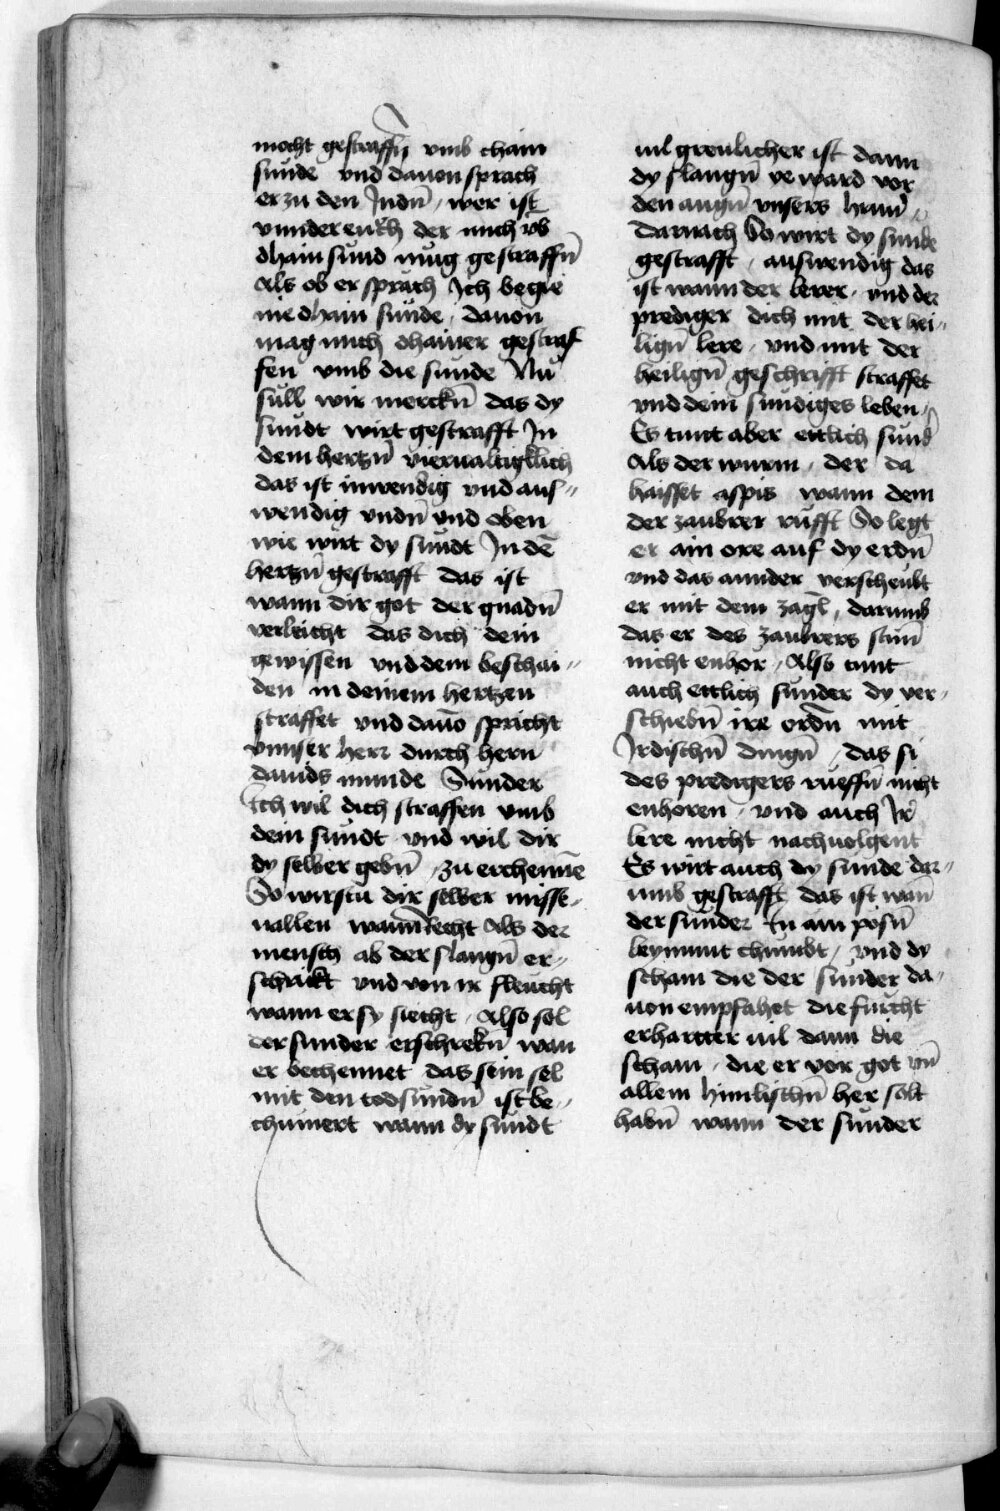 mocht gestraffn̄ vmb chain
sunde vnd dauon sprach
er zu den Judn̄, wer ist
vnnder eukh der mich vb
dhain sund mug gestraffn̄
Als ob er sprach Ich begie
nie dhain sunde, dauon
mag mich dhainer gestraf
fen vmb die sunde Nu
sull wir merckn̄ das dy
sundt wirt gestrafft In
dem hertzn̄ viernaltigklich
das ist inwendig vnd aus⸗
wendig vndn̄ vnd oben
wie wirt dy sundt In dē
hertzn̄ gestrafft das ist
wann dir got der gnadn̄
verleicht das dich dein
gewissen vnd dem beschai⸗
den in deinem hertzen
straffet vnd dauō spricht
vnnser herr durch hern
dauids munde Sunder
Ich wil dich straffen vmb
dein sundt vnd wil dir
dy selber gebn̄, zu erchennē
So wirstu dir selber misse⸗
uallen wann̄ recht Als der
mensch ab der slangn̄ er⸗
schrikt vnd von ir fleucht
wann er sy siecht, Also sol
der sunder erschrekn̄ wan
er bechennet das sein sel
mit den todsundn̄ ist be⸗
chumert wann dy sundt
uil greulicher ist dann
dy slangn̄ ye ward vor
den augn̄ vnsers
Darnach So wirt dy sunde
gestrafft, auswendig das
ist wann der lerer, und der
prediger dich mit der hei⸗
lign̄ lere, vnd mit der
heilign̄ geschrifft straffet
vnd dein sundiges leben⸗
Es tunt aber ettlich sund̄
Als der wurm, der da
haisset aspis wann dem
der zaubrer rufft So legt
er ain ore auf dy erdn̄
vnd das annder verscheubt
er mit dem zagl, darumb
das er des zaubrers stim̄
nicht enhor, Also tunt
auch ettlich sunder dy ver⸗
schiebn̄ ire ordn̄ mit
Irdischn̄ dingn̄, das si
des predigers rueffn̄ nicht
enhoren, vnd auch Ir
lere nicht nachuolgent
Es wirt auch dy sunde dar⸗
umb gestrafft das ist wan̄
der sunder In ain posn̄
leymunt chumbt, vnd dy
scham die der sunder da⸗
uon empfahet die furcht
er hartter uil dann die
scham, die er vor got vn̄
allem himlischn̄ her solt
habn̄ wann der sunder